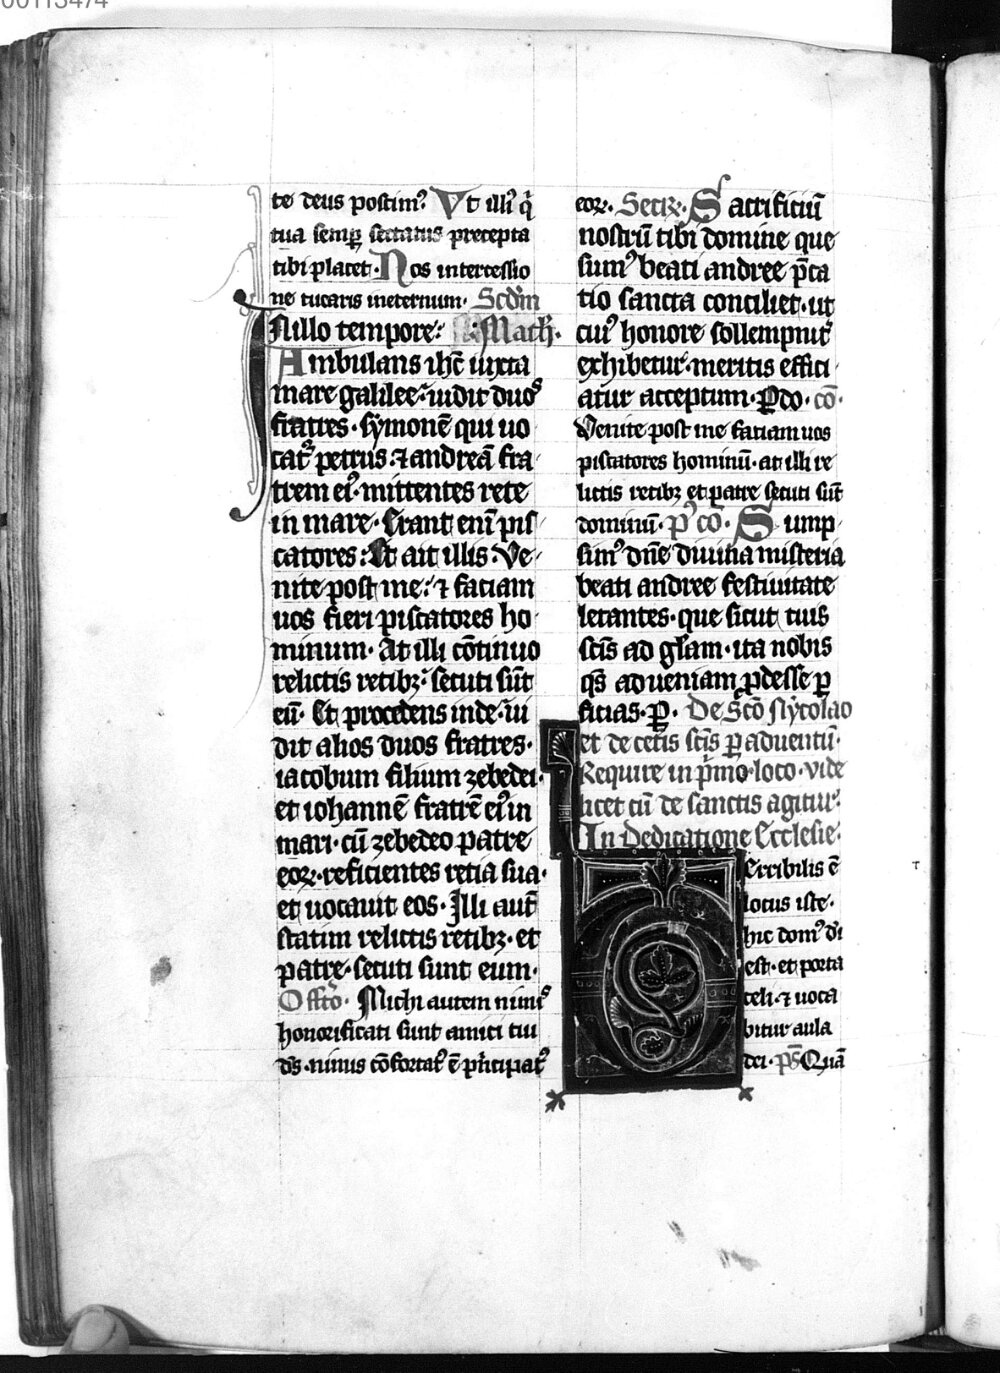 te deus postimꝰ Vt illiꝰ q̇
tua semꝑ sectatus precepta
tibi placet· Nos intercessio
ne tucaris ineternum· Scd̄m
Nillo tempore: Math̄·
Ambulans ih̄c iuxta
mare galilee: uidit duoꝰ
fratres· symonē qui uo
catᷣ petrus: ⁊ andreā fra
trem eiꝰ· mittentes rete
in mare· Erant enī pis
catores: Et ait illis· Ve
nite post me: ⁊ faciam
uos fieri piscatores ho
minum· At illi cōtinuo
relictis retibꝫ: secuti sūt
eū· Et procedens inde· ui
dit alios duos fratres·
iacobum filium zebedei·
et iohannē fratrē eiꝰ in
mari· cū zebedeo patre
eoꝝ· reficientes retia sua·
et uocauit eos· Illi aut̄
statim relictis retibꝫ· et
patre· secuti sunt eum·
Offr̄o· Michi autem nimiꝰ
honorificati sunt amici tui
ds̄· nimis cōfortatꝰ ē p̄ncipatꝰ
eoꝝ· Secr̄· Sacrificiū
nostrū tibi domine que
sumꝰ beati andree p̄ca
tio sancta conciliet· ut
cuiꝰ honore sollempnitᷣ
exhibetur· meritis effici
atur acceptum· P̱do· cō·
Venite post me faciam uos
piscatores hominū· at illi re
lictis retibꝫ et patre secuti sūt
dominū· p̄ cō· Sump
simꝰ dn̄e diuina misteria
beati andree festiuitate
letantes· que sicut tuis
sc̄is ad gl̄am· ita nobis
qs̄ ad ueniam ꝓdesse ꝑ
ficias· ꝑ· De sc̄o Nycolao
et de cet̄is sc̄is ꝑ aduentū·
Require in p̄mo loco· vide
licet cū de sanctis agitur·
In Dedicatione Ecclesie·
Terribilis ē
locus iste·
hic domꝰ dī
est· et porta
celi· ⁊ uoca
bitur aula
dei· ps̄ Quā